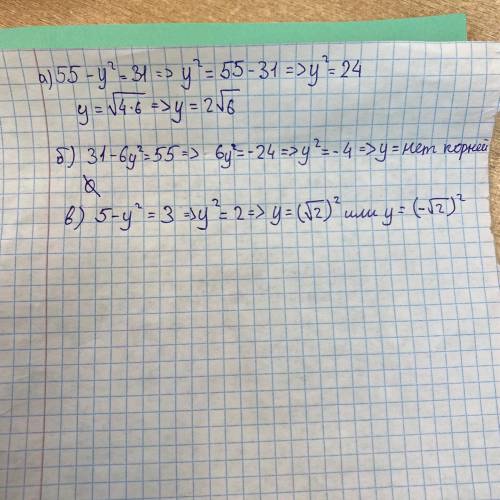 а) 55 - y² = 31 => y² = 55 - 31 => y² = 24
y = √4·6 => y = 2√6
б) 31 - 6y² = 55 => 6y² = -24 => y² = -4 => y = нет корней
в) 5 - y² = 3 => y² = 2 => y = (√2)² или y = (-√2)²